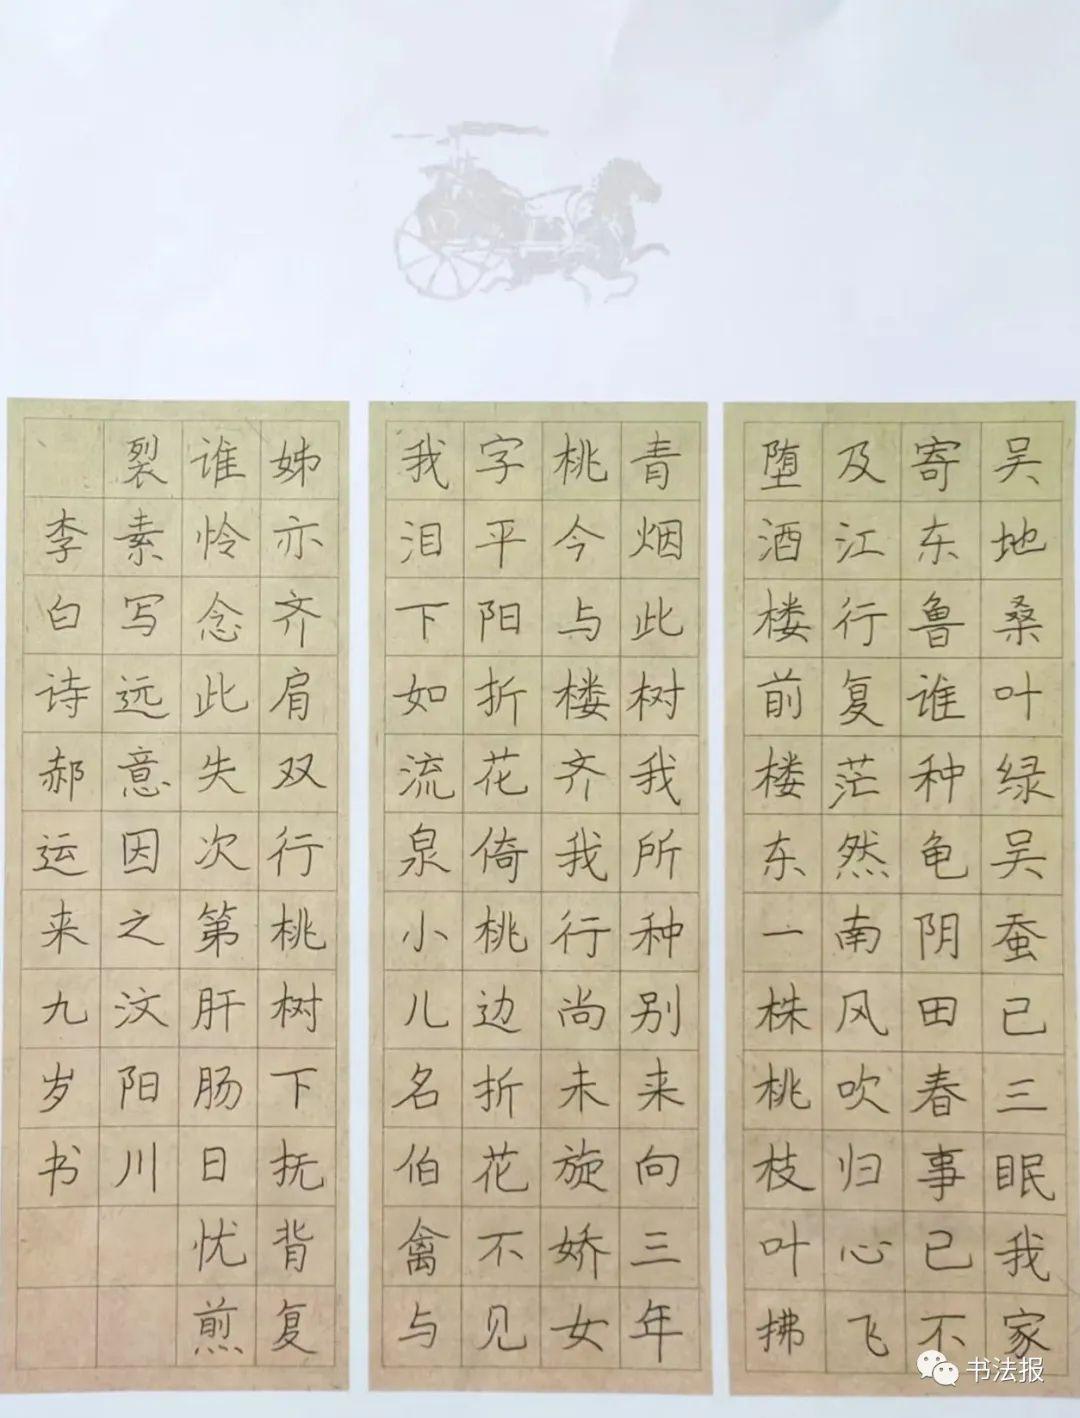 吴地桑叶绿吴蚕已三眠我家
寄东鲁谁种龟阴田春事已不
及江行复茫然南风吹归心飞
堕酒楼前楼东一株桃枝叶拂
青烟此树我所种别来向三年
桃今与楼齐我行尚未旋娇女
字平阳折花倚桃边折花不见
我泪下如流泉小儿名伯禽与
姊亦齐肩双行桃树下抚背复
谁怜念此失次第肝肠日忧煎
裂素写远意因之汶阳川
李白诗郝运来九岁书
书法报